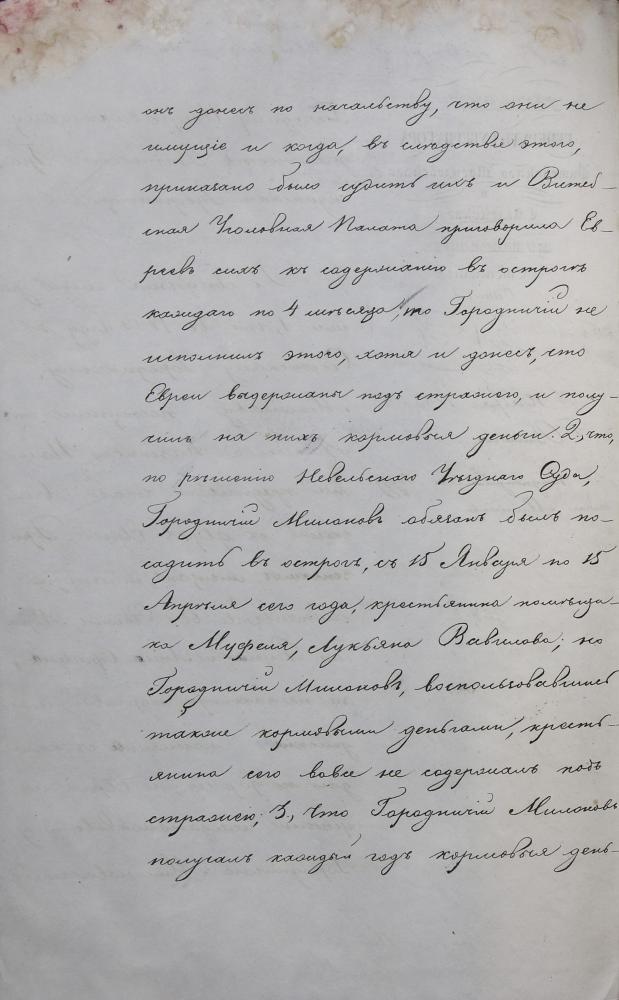 онъ донесъ по начальству, что они не
имущіе и когда, въ слѣдствіе этого,
приказано было судить ихъ и Витеб-
ская Уголовная Палата приговорила Ев-
реевъ сихъ къ содержанію въ острогѣ
каждаго по 4 мѣсяца, то Городничій не
исполнилъ этого, хотя и донесъ, что
Евреи выдержаны подъ стражею, и полу-
чилъ на нихъ кормовыя деньги. 2., что,
по рѣшенію Невельскаго Уѣзднаго Суда,
Городничій Милюковъ обязанъ былъ по-
садить въ острогъ, съ 15 Января по 15
Апрѣля сего года, крестьянина помѣщи-
ка Муфеля, Лукьяна Вавилова; но
Городничій Милюковъ, воспользовавшись
также кормовыми деньгами, кресть-
янина сего вовсе не содержалъ подъ
стражею; 3., Что Городничій Милюковъ
получалъ каждый годъ кормовыя день-